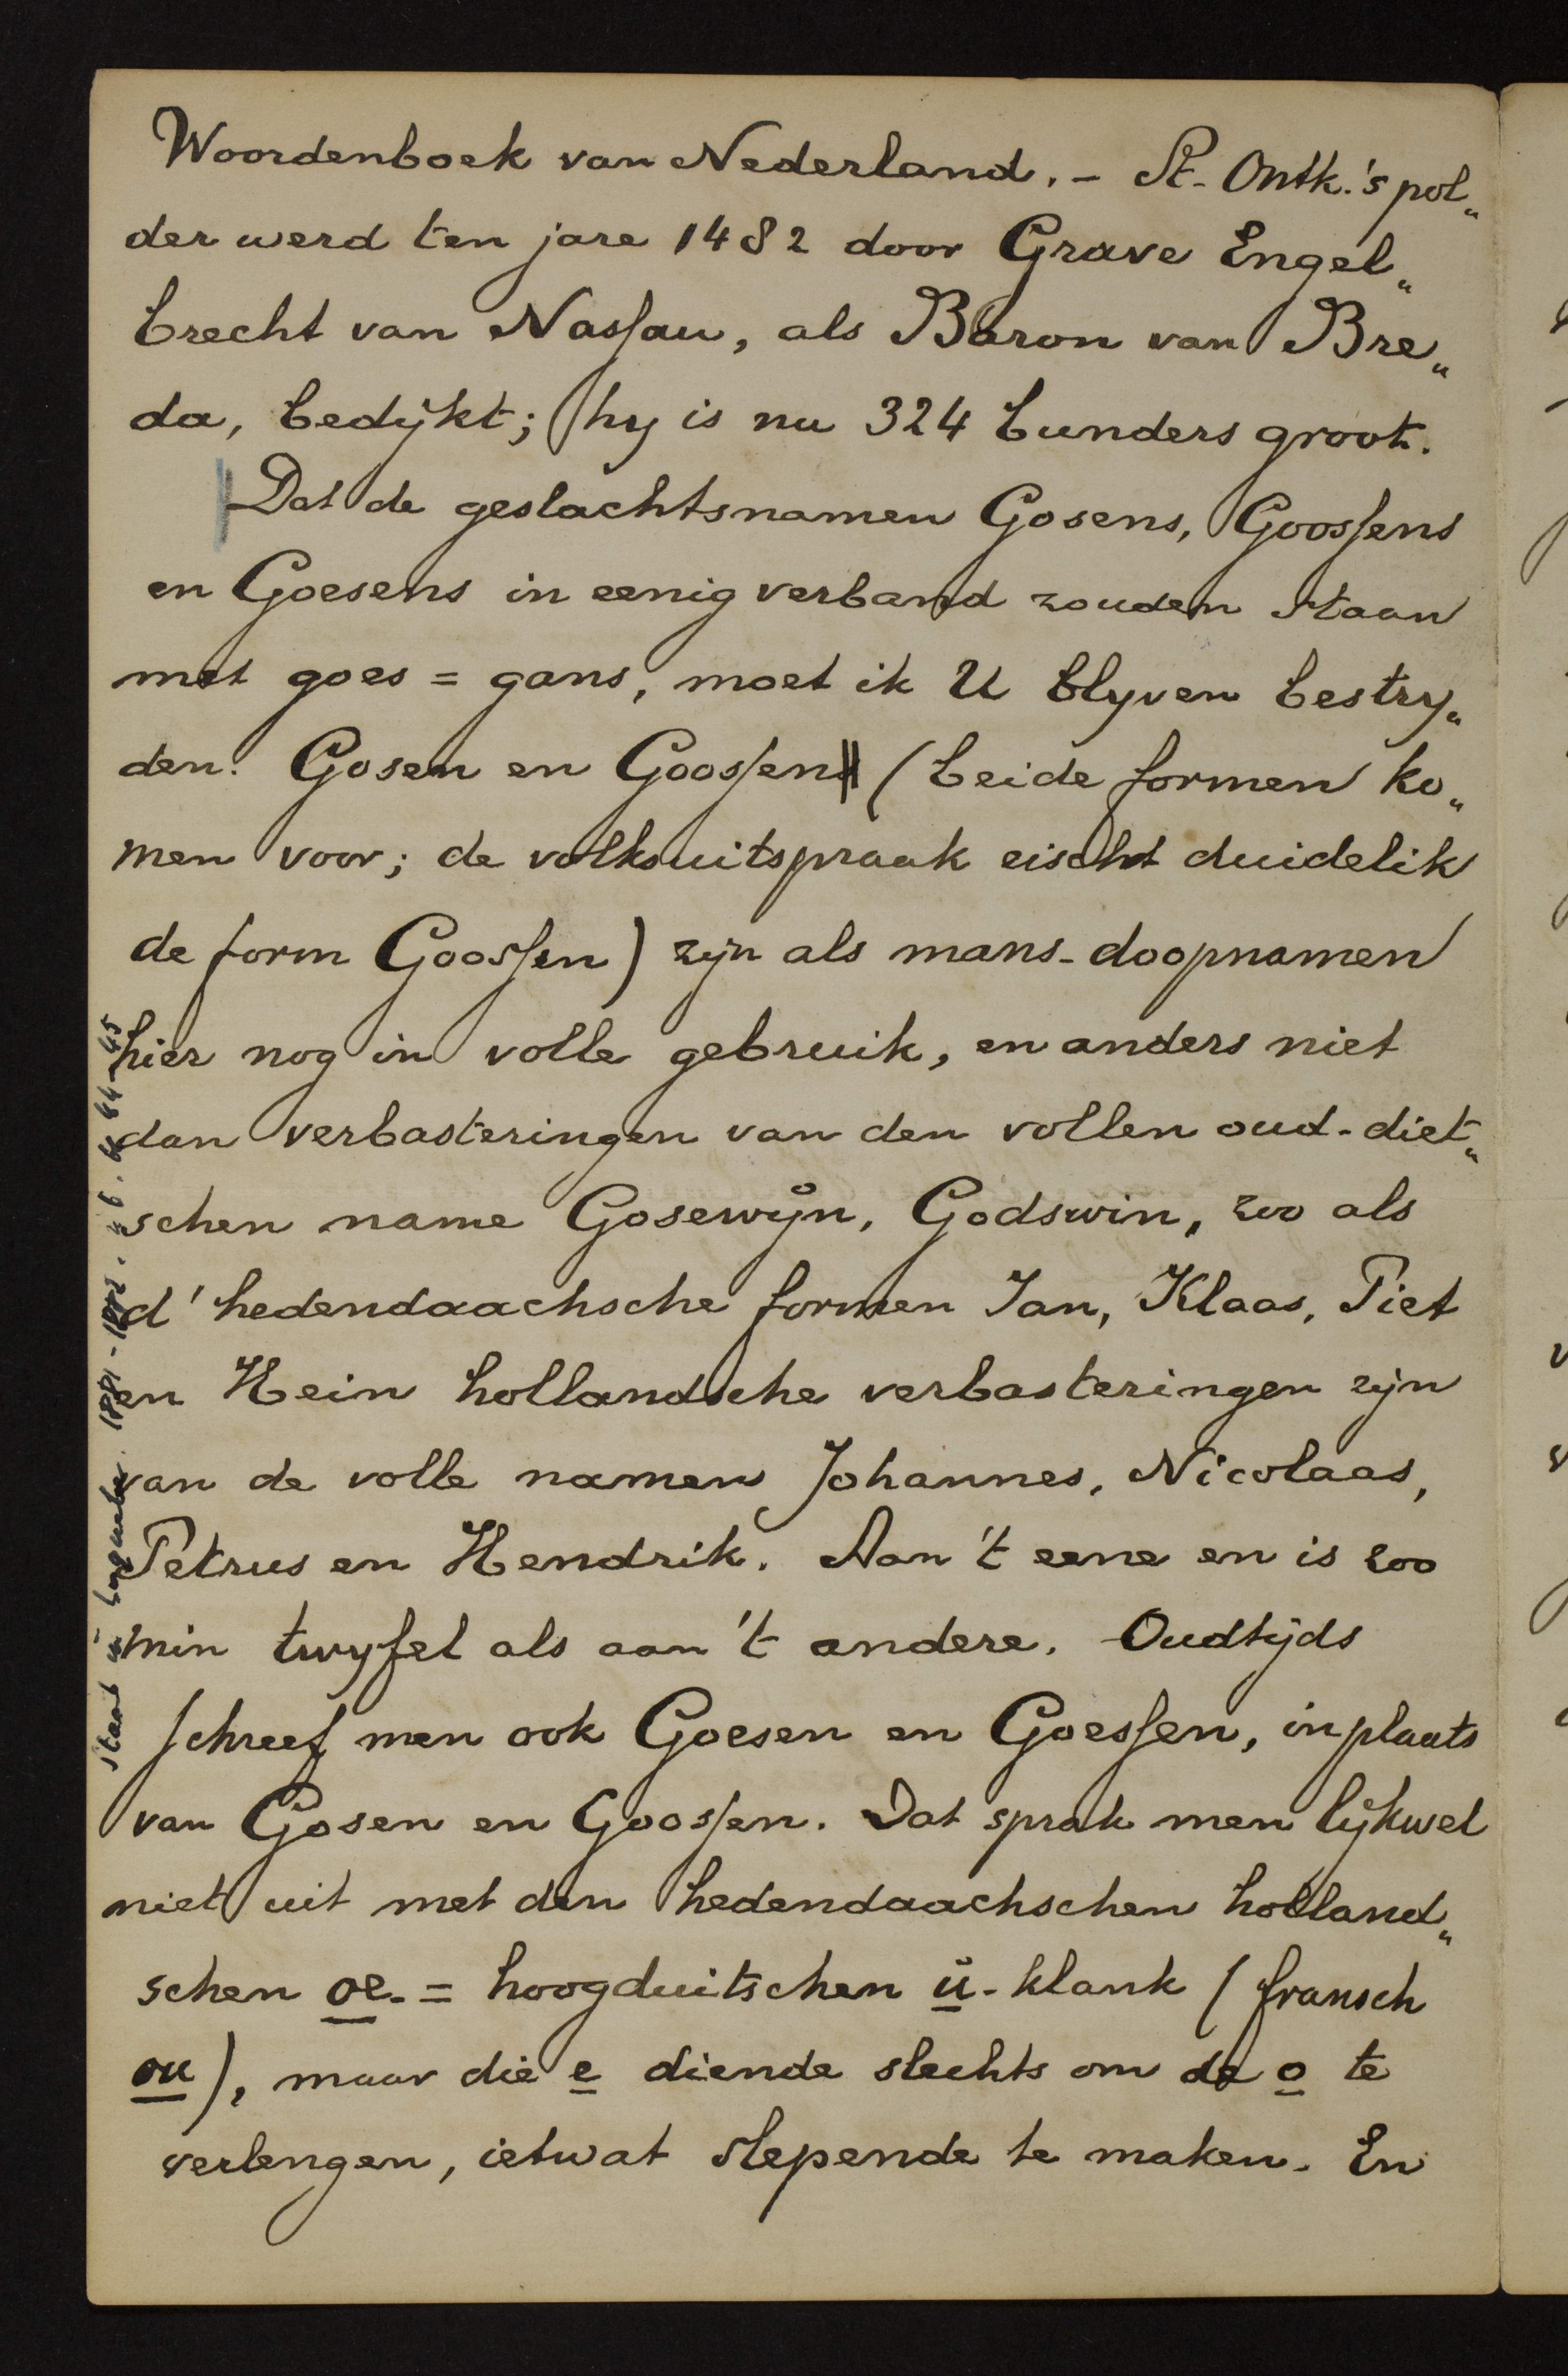 Woordenboek van Nederland. - St. Ontk.'s pol„
der werd ten jare 1482 door Grave Engel„
brecht van Nassau, als Baron van Bre„
da, bedijkt; hy is nu 324 bunders groot.
Dat de geslachtsnamen Gosens, Goossens
en Goesens in eenig verband zouden staan
met goes = gans, moet ik U blyven bestry„
den. Gosen en Goossen (beide formen ko„
men voor; de volksuitspraak eischt duidelik
de form Goossen) zijn als mans-doopnamen
hier nog in volle gebruik, en anders niet
dan verbasteringen van den vollen oud-diet„
schen name Gosewijn, Godswin, zoo als
d' hedendaachsche formen Jan, Klaas, Piet
en Hein hollandsche verbasteringen zijn
van de volle namen Johannes, Nicolaas,
Petrus en Hendrik. Aan 't eene en is zoo
min twyfel als aan 't andere. Oudtijds
schreef men ook Goesen en Goessen, in plaats
van Gosen en Goossen. Dat sprak men lijkwel
niet uit met den hedendaachschen holland„
schen oe- = hoogduitschen ŭ-klank (fransch
ou), maar die e diende slechts om de o te
verlengen, ietwat slepende te maken. En
staat in 1881-1882